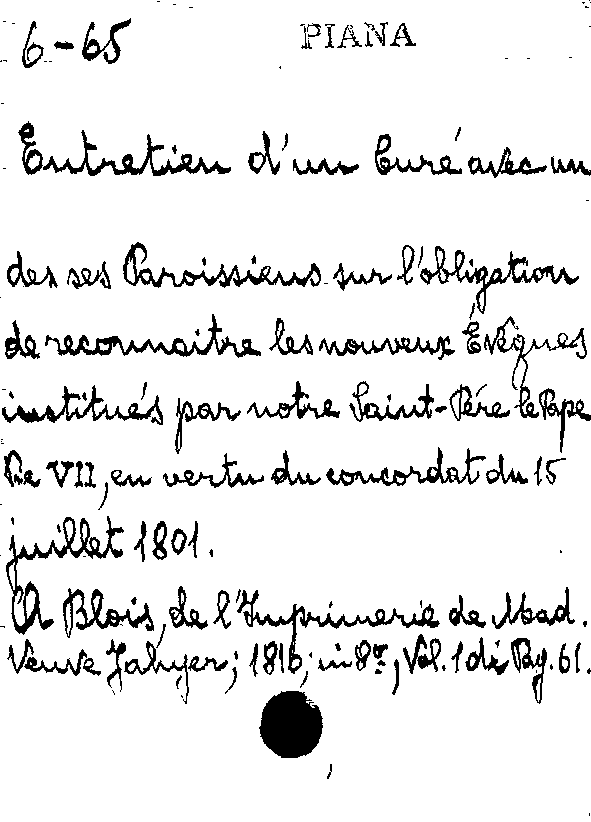 6-65 PIANA
Entretien d'un Curé avec un
des ses Paroissiens sur l'obligation
de reconnaitre les nouveux Évêques
institués par notre Saint-Pére le Pape
Pie VII, en vertu du concordat du 15
juillet 1801.
A Blois, de l'Imprimerie de Mad.
Veuve Jahyer; 1816; in 8º; Vol. 1 di Pag. 61.